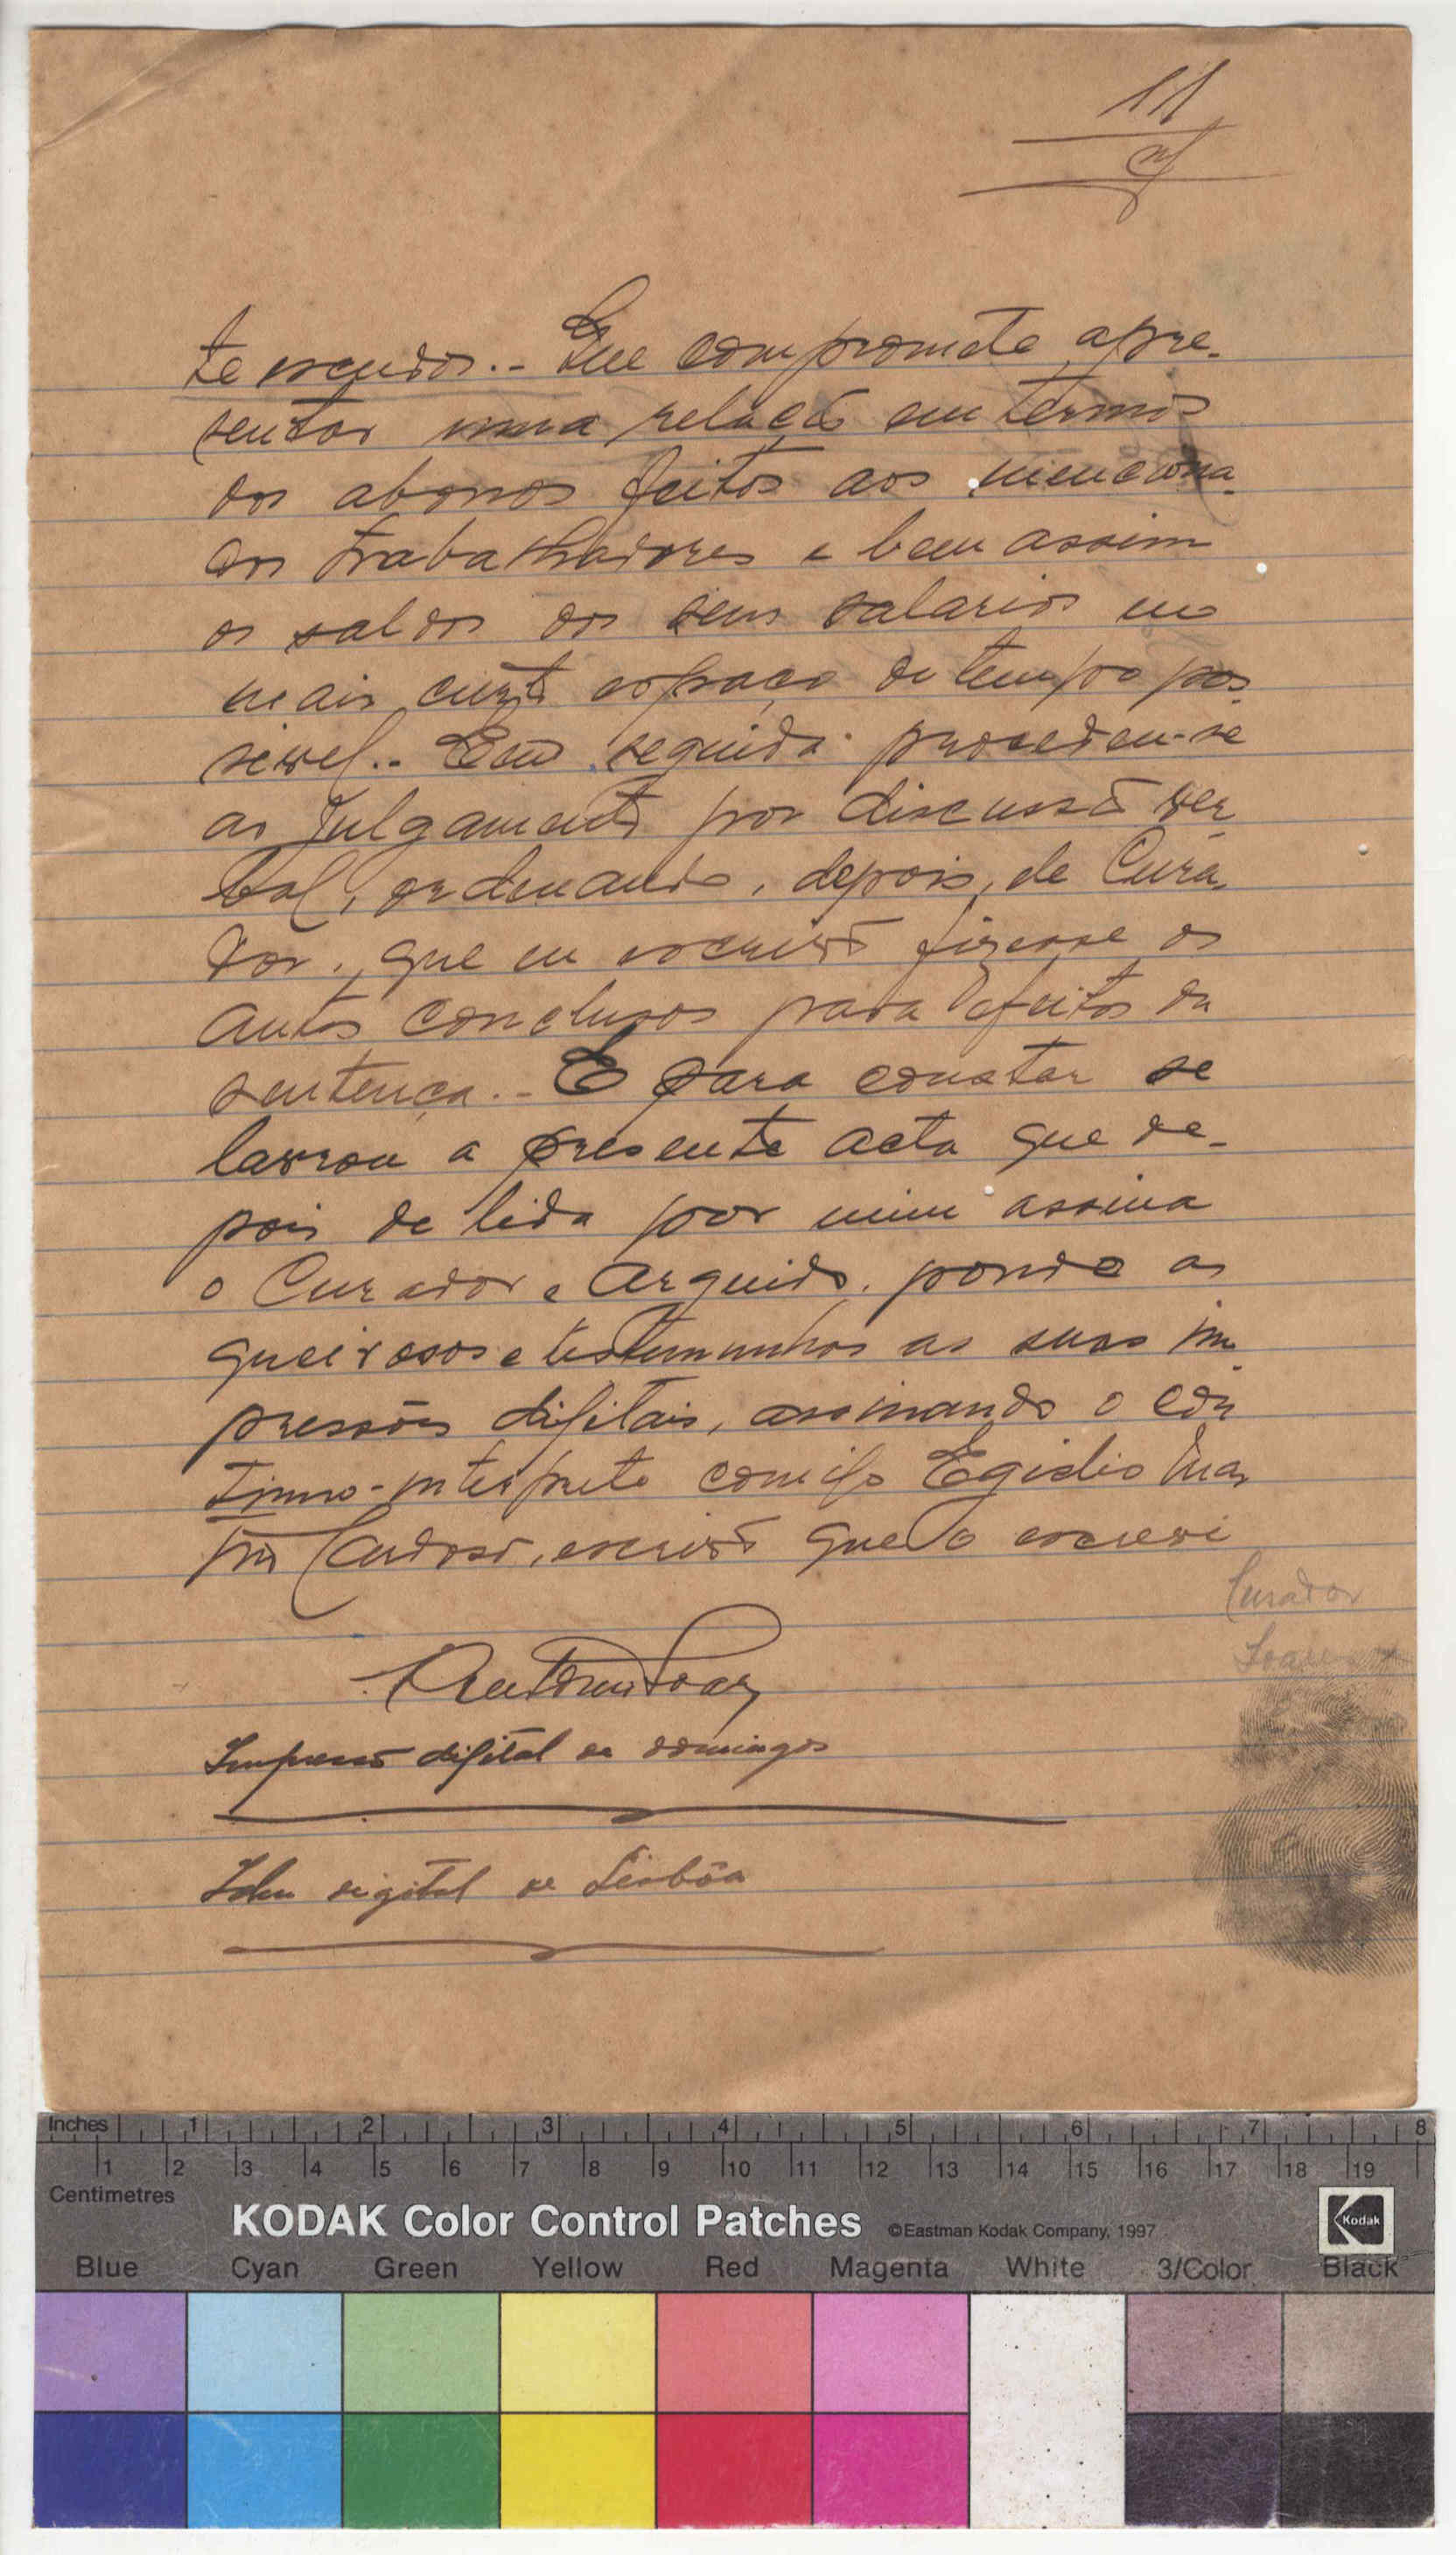 11
te escudos.- Que compromete apre-
sentar uma relação em termos
dos abonos feitos aos menciona-
dos trabalhadores e bem assim
os saldos dos seus salarios no
mais curto espaço de tempo pos-
sivel.- Em seguida procedeu-se
ao julgamento por discussão ver-
bal, ordenando, depois, ele Cura-
dor, que eu escrivão fizesse os
autos conclusos para efeitos da
sentença.- E para constar se
lavrou a presente acta que de-
pois de lida por mim assina
o Curador e Arguido, pondo os
queixosos e testemunhas as suas im-
pressões digitais, assinando o con-
tinuo-interprete comigo Egidio
Cardoso, escrivão que o escrevi
Curador
Soares
Impressão digital de Domingos
Idem digital de Lisbôa
Inches 1 2 3 4 5 6 7 8
1 2 3 4 5 6 7 8 9 10 11 12 13 14 15 16 17 18 19
Centimetres
KODAK Color Control Patches ©Eastman Kodak Company, 1997 Kodak
Blue Cyan Green Yellow Red Magenta White 3/Color Black